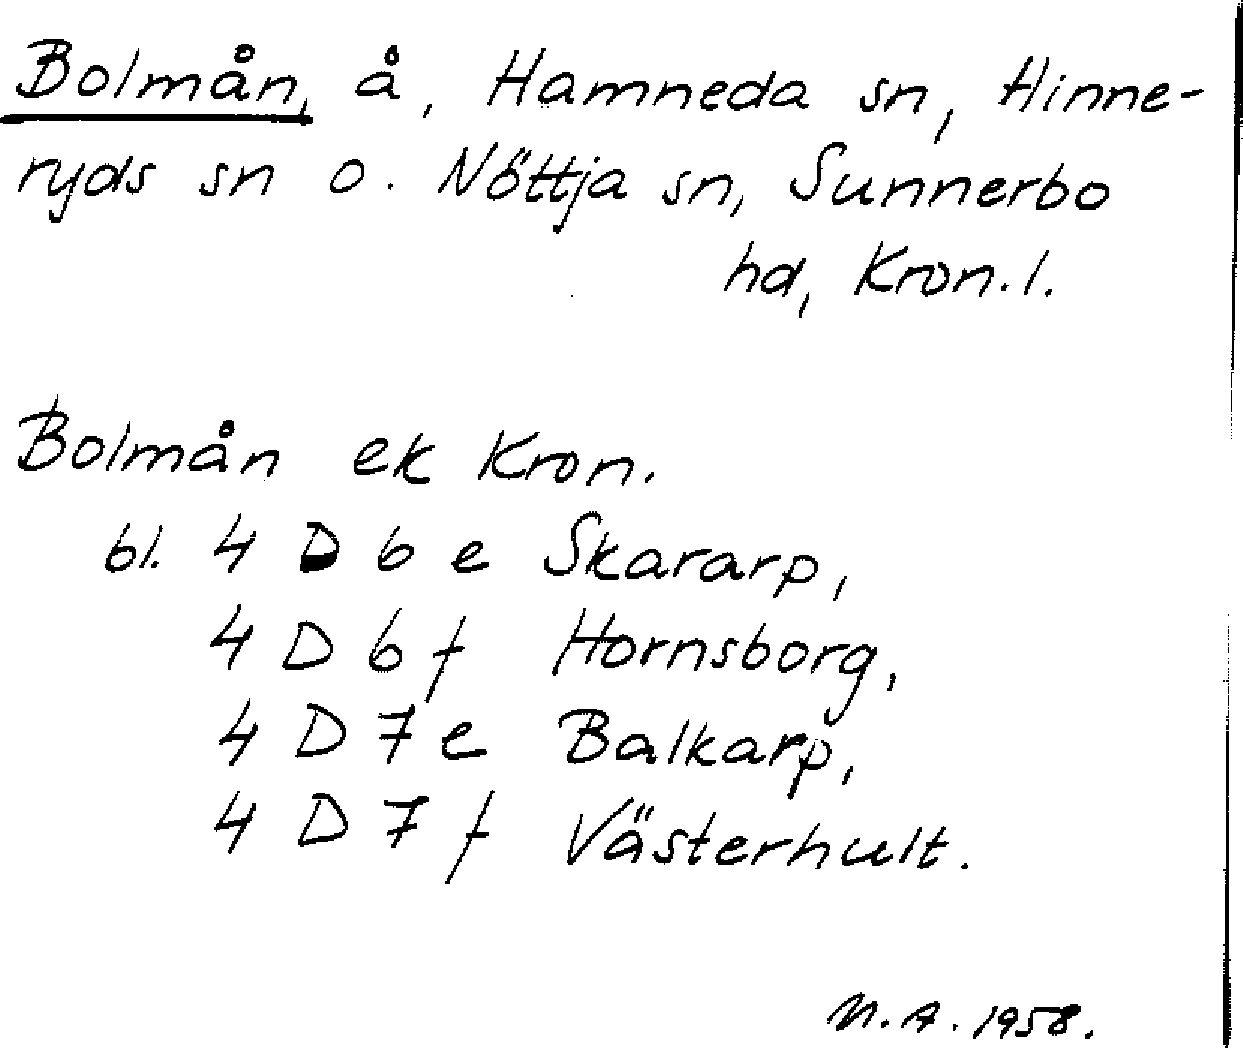 Bolmån, å, Hamneda sn, Hinne-
ryds sn o. Nöttja sn, Sunnerbo
hd, Kron. l.
Bolmån ek Kron.
bl. 4 D 6 e Skararp,
4 D 6 f Hornsborg,
4 D 7 e Balkarp,
4 D 7 f Västerhult.
N. A. 1958.